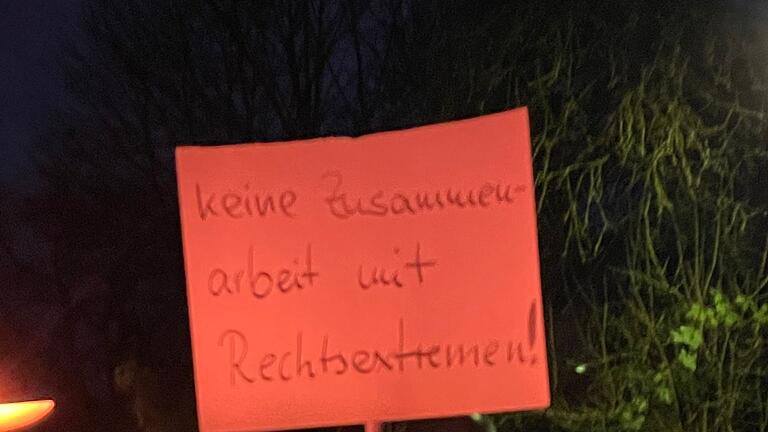 keine Zusammen-
arbeit mit
Rechtsextremen!